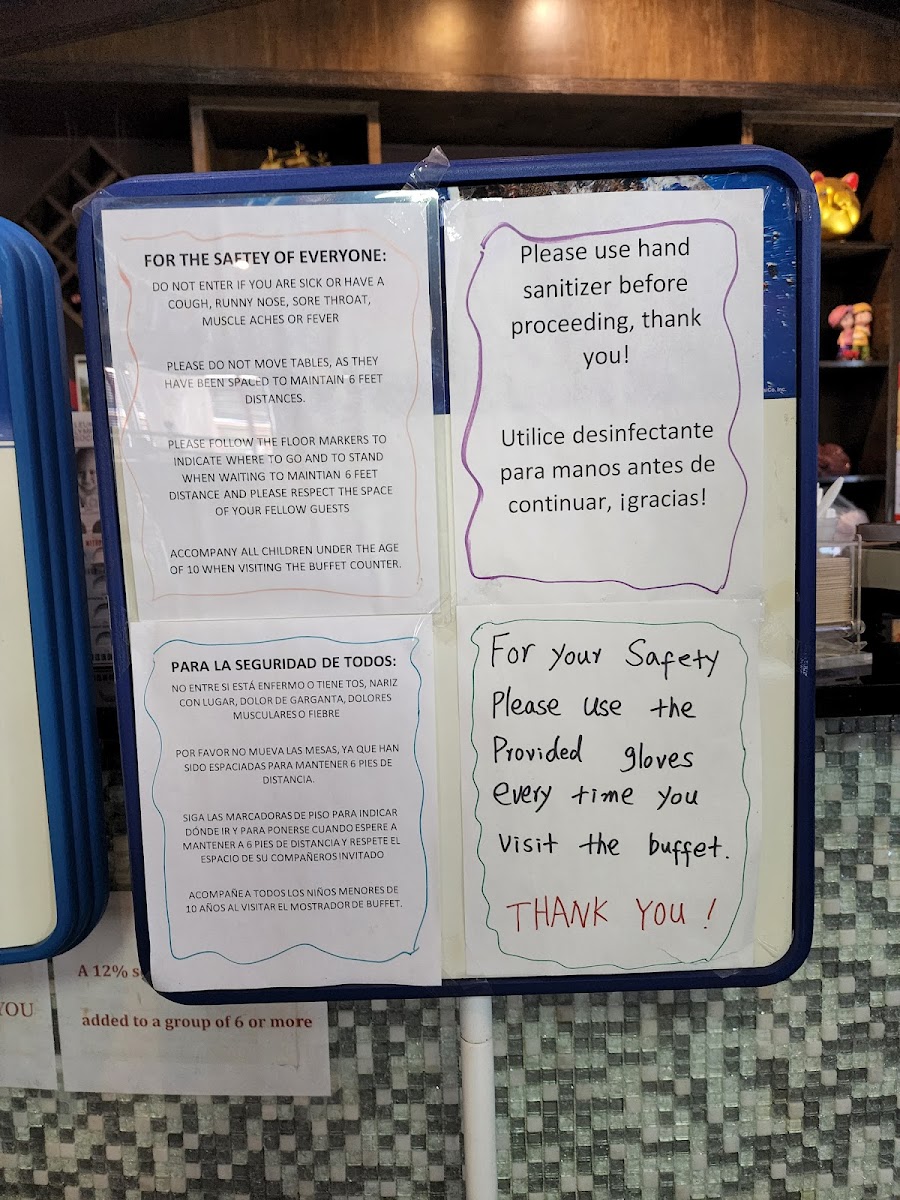 FOR THE SAFTEY OF EVERYONE:
DO NOT ENTER IF YOU ARE SICK OR HAVE A
COUGH, RUNNY NOSE, SORE THROAT,
MUSCLE ACHES OR FEVER
PLEASE DO NOT MOVE TABLES, AS THEY
HAVE BEEN SPACED TO MAINTAIN 6 FEET
DISTANCES.
PLEASE FOLLOW THE FLOOR MARKERS TO
INDICATE WHERE TO GO AND TO STAND
WHEN WAITING TO MAINTIAN 6 FEET
DISTANCE AND PLEASE RESPECT THE SPACE
OF YOUR FELLOW GUESTS
ACCOMPANY ALL CHILDREN UNDER THE AGE
OF 10 WHEN VISITING THE BUFFET COUNTER.
Please use hand
sanitizer before
proceeding, thank
you!
Utilice desinfectante
para manos antes de
continuar, ¡gracias!
PARA LA SEGURIDAD DE TODOS:
NO ENTRE SI ESTÁ ENFERMO O TIENE TOS, NARIZ
CON LUGAR, DOLOR DE GARGANTA, DOLORES
MUSCULARES O FIEBRE
POR FAVOR NO MUEVA LAS MESAS, YA QUE HAN
SIDO ESPACIADAS PARA MANTENER 6 PIES DE
DISTANCIA.
SIGA LAS MARCADORAS DE PISO PARA INDICAR
DÓNDE IR Y PARA PONERSE CUANDO ESPERE A
MANTENER A 6 PIES DE DISTANCIA Y RESPETE EL
ESPACIO DE SU COMPAÑEROS INVITADO
ACOMPAÑE A TODOS LOS NIÑOS MENORES DE
10 AÑOS AL VISITAR EL MOSTRADOR DE BUFFET.
For your Safety
Please use the
Provided gloves
every time you
visit the buffet.
THANK YOU!
A 12%
added to a group of 6 or more
YOU